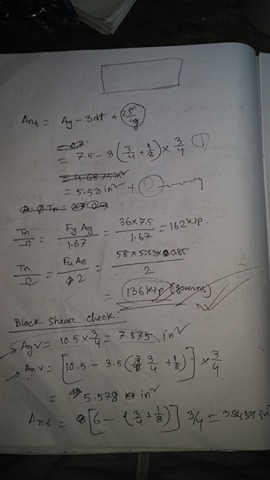 Ant = Ag - 3dt +
= 7.5 - 3 (3/4 + 1/8) × 3/4
= 5.53 in² +
Tn/Ω = FyAg/1.67 = 36×7.5/1.67 = 162 kip.
Tn/Ω = FuAe/2 = 58×5.53×0.85/2
= 136 kip (governs)
Block Shear Check:
Agv = 10.5 × 3/4 = 7.875 in²
Anv = [10.5 - 3.5 (3/4 + 1/8)] × 3/4
= 5.578 in²
Ant = [6 - 1(3/4 + 1/8)] 3/4 =